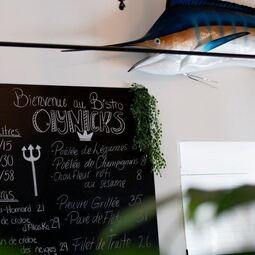 Bienvenue au Bistro
OLYNICKS
Litres
15
/30
/58
Poêlée de Légumes 8
Poêlée de Champignons 8
Chouffleur roti 8
au sésame
-Homard 21
d'Alaska 29
de crabe
des neiges 29
Pieuvre Grillée 35
Purée de
Filet de Truite 26